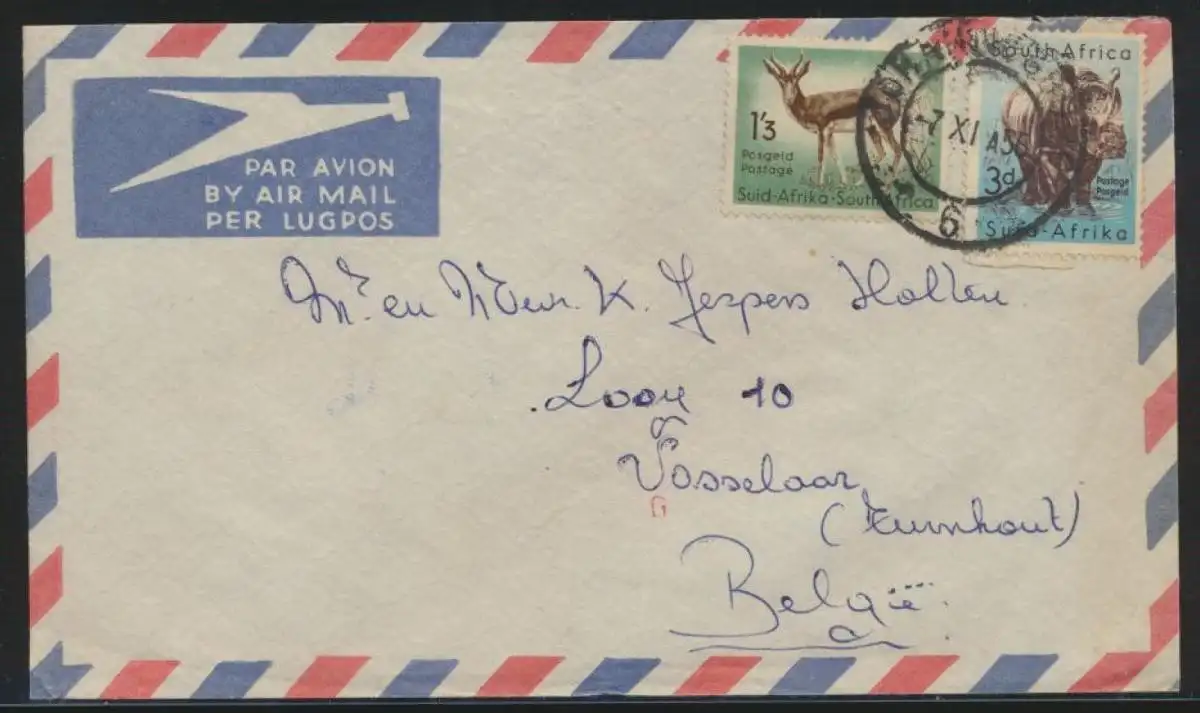 PAR AVION
BY AIR MAIL
PER LUGPOS
1'3
Posgeld
Postage
Suid-Afrika-South Africa
South Africa
3d
Postage
Posgeld
Suid-Afrika
7 XI
6
Mr en Mevr. K. Jespers Holten
Loou 10
Vosselaar
(Turnhout)
België